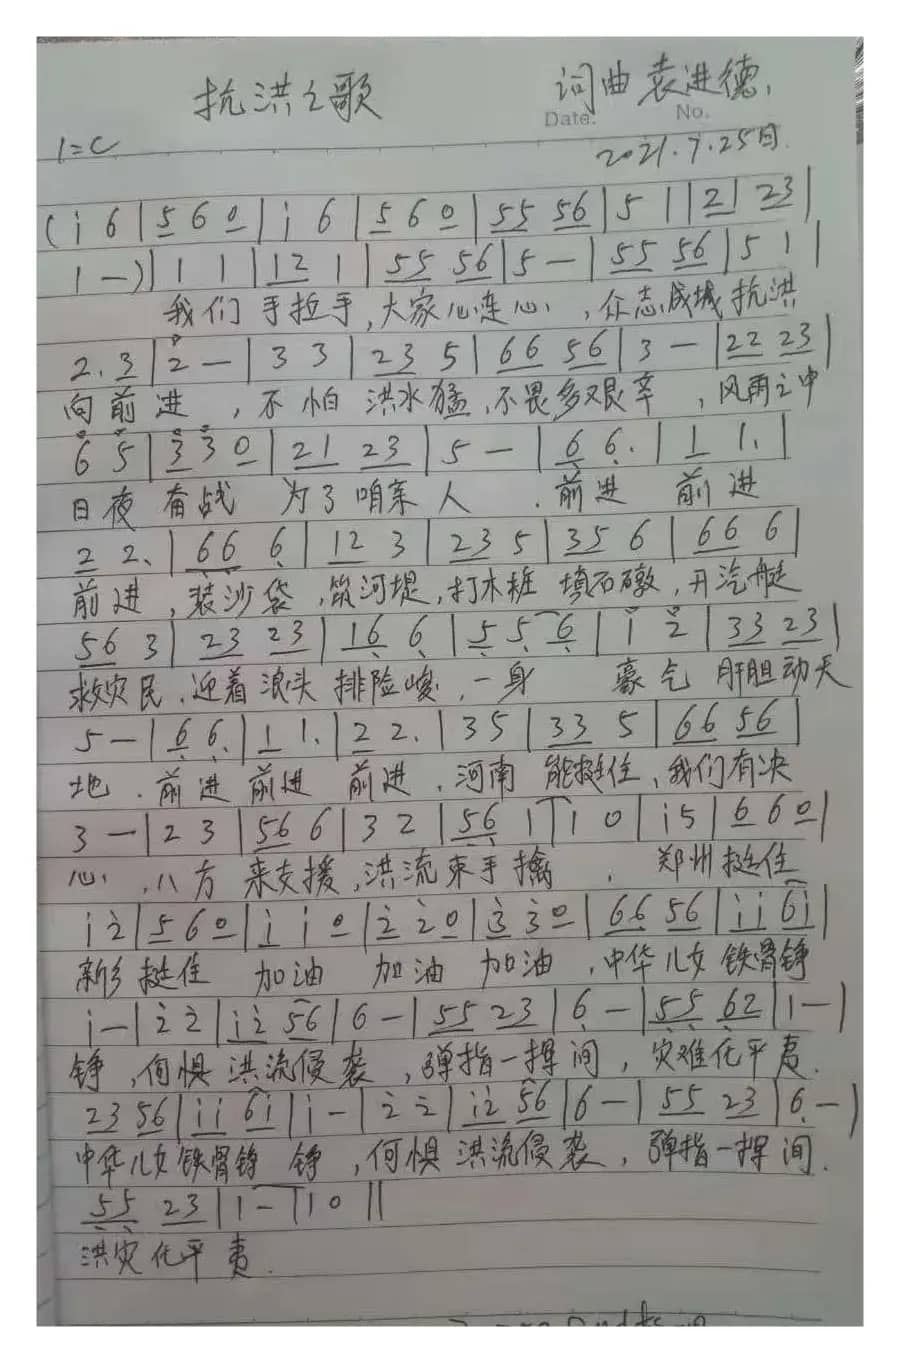 抗洪之歌 词曲 袁进德
Date. No.
1=C 2021.7.25日
(i 6 | 5 6 0 | i 6 | 5 6 0 | 55 56 | 5 1 | 21 23 |
1 —) | 1 1 | 12 1 | 55 56 | 5 — | 55 56 | 5 1 |
我们 手拉手,大家心连心,众志成城抗洪
2. 3 | 2 — | 3 3 | 23 5 | 66 56 | 3 — | 22 23 |
向前进,不怕 洪水猛,不畏多艰辛,风雨之中
6 5 | 3 3 0 | 21 23 | 5 — | 6 6. | 1 1. |
日夜 奋战 为了咱亲人.前进 前进
2 2. | 66 6 | 12 3 | 23 5 | 35 6 | 66 6 |
前进,装沙袋,筑河堤,打木桩 填石礅,开汽艇
56 3 | 23 23 | 16 6 | 5 5 6 | i 2 | 33 23 |
救灾民.迎着浪头 排险峻,一身 豪气 肝胆动天
5 — | 6 6. | 1 1. | 2 2. | 3 5 | 33 5 | 66 56 |
地.前进 前进 前进,河南 能挺住,我们有决
3 — | 2 3 | 56 6 | 3 2 | 56 1 | 1 0 | i 5 | 6 6 0 |
心,八方 来支援,洪流束手擒,郑州挺住
i 2 | 5 6 0 | i i 0 | 2 2 0 | 3 3 0 | 66 56 | i i 6i |
新乡 挺住 加油 加油 加油,中华儿女 铁骨铮
i — | 2 2 | i2 56 | 6 — | 55 23 | 6 — | 55 62 | 1 — |
铮,何惧 洪流侵袭,弹指一挥间,灾难化平夷.
23 56 | i i 6i | i — | 2 2 | i2 56 | 6 — | 55 23 | 6 — |
中华儿女 铁骨铮 铮,何惧 洪流侵袭,弹指一挥间.
55 23 | 1 — | 1 0 ||
洪灾化平夷.